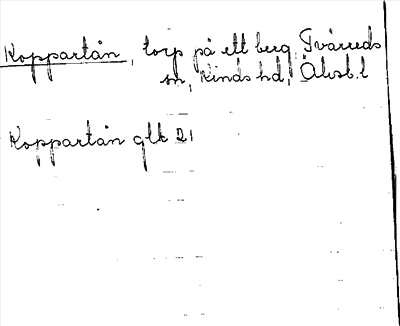 Koppartån, torp på ett berg, Tvärreds
sn, Kinds hd, Älvsb. l
Koppartån glk 21